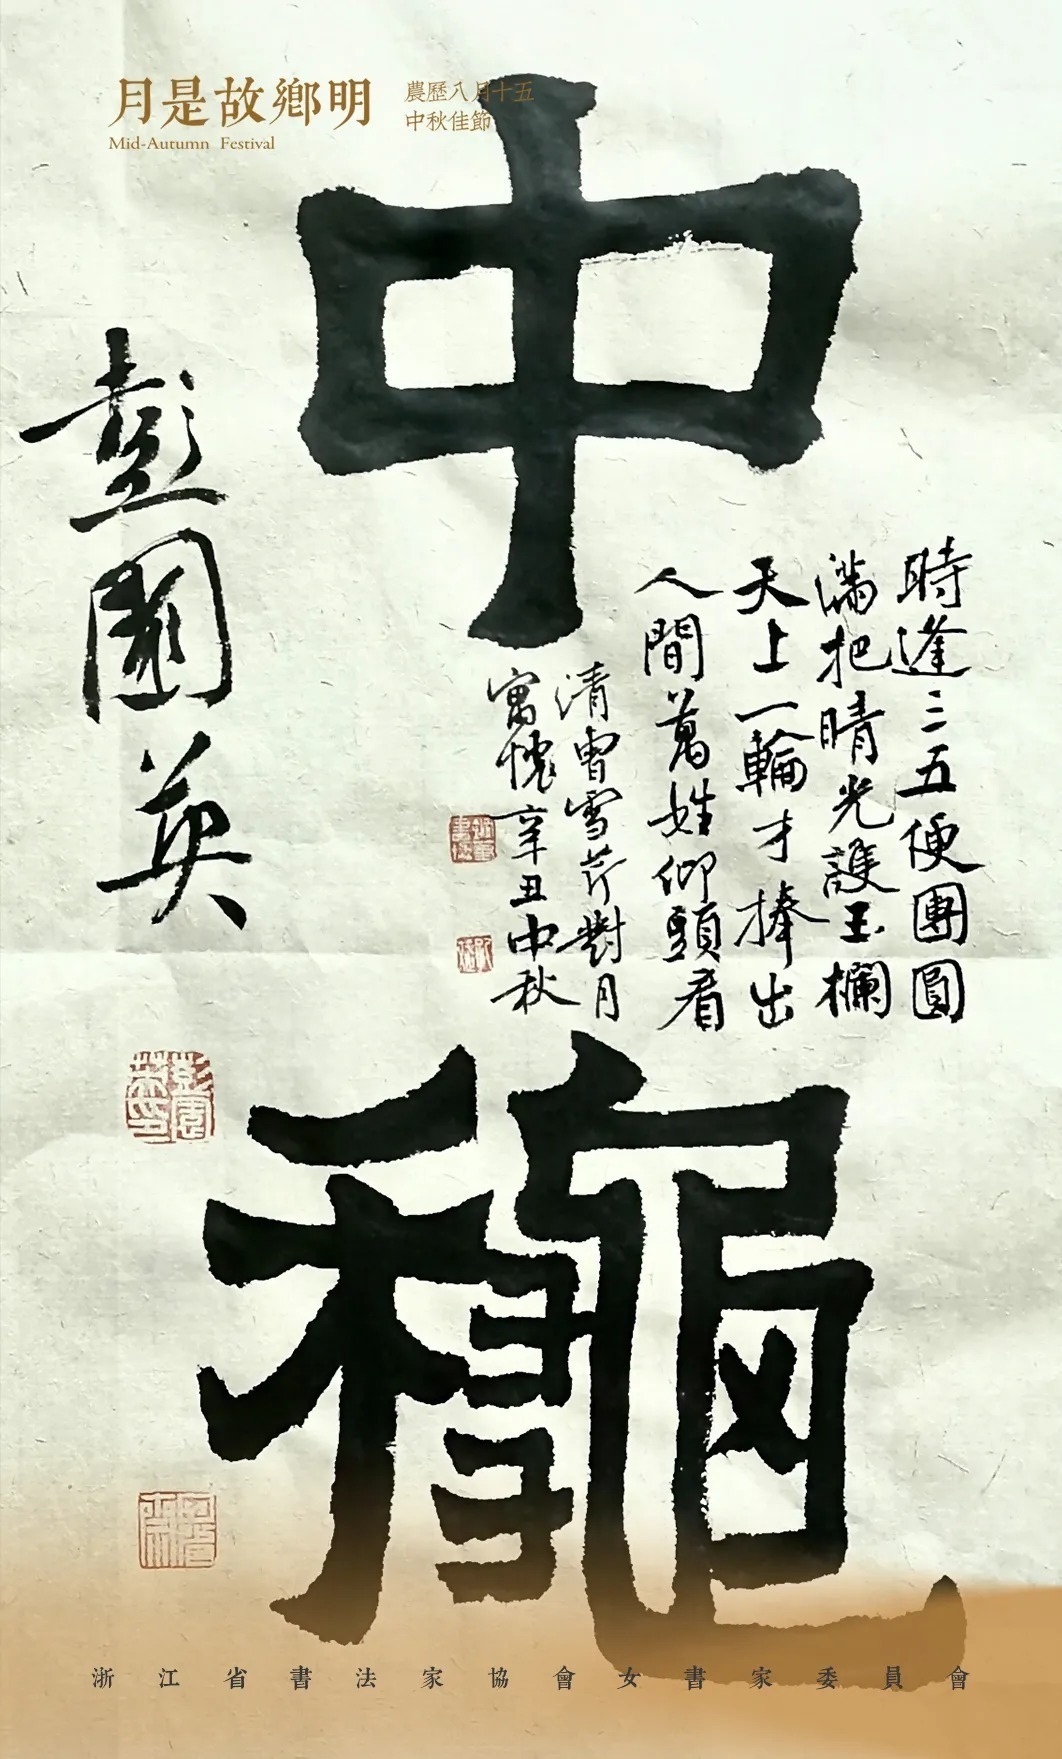 月是故鄉明
Mid-Autumn Festival
農歷八月十五
中秋佳節
中龝
時逢三五便團圓
滿把晴光護玉欄
天上一輪才捧出
人間萬姓仰頭看
清曹雪芹對月
寓懷辛丑中秋
彭園英
浙江省書法家協會女書家委員會